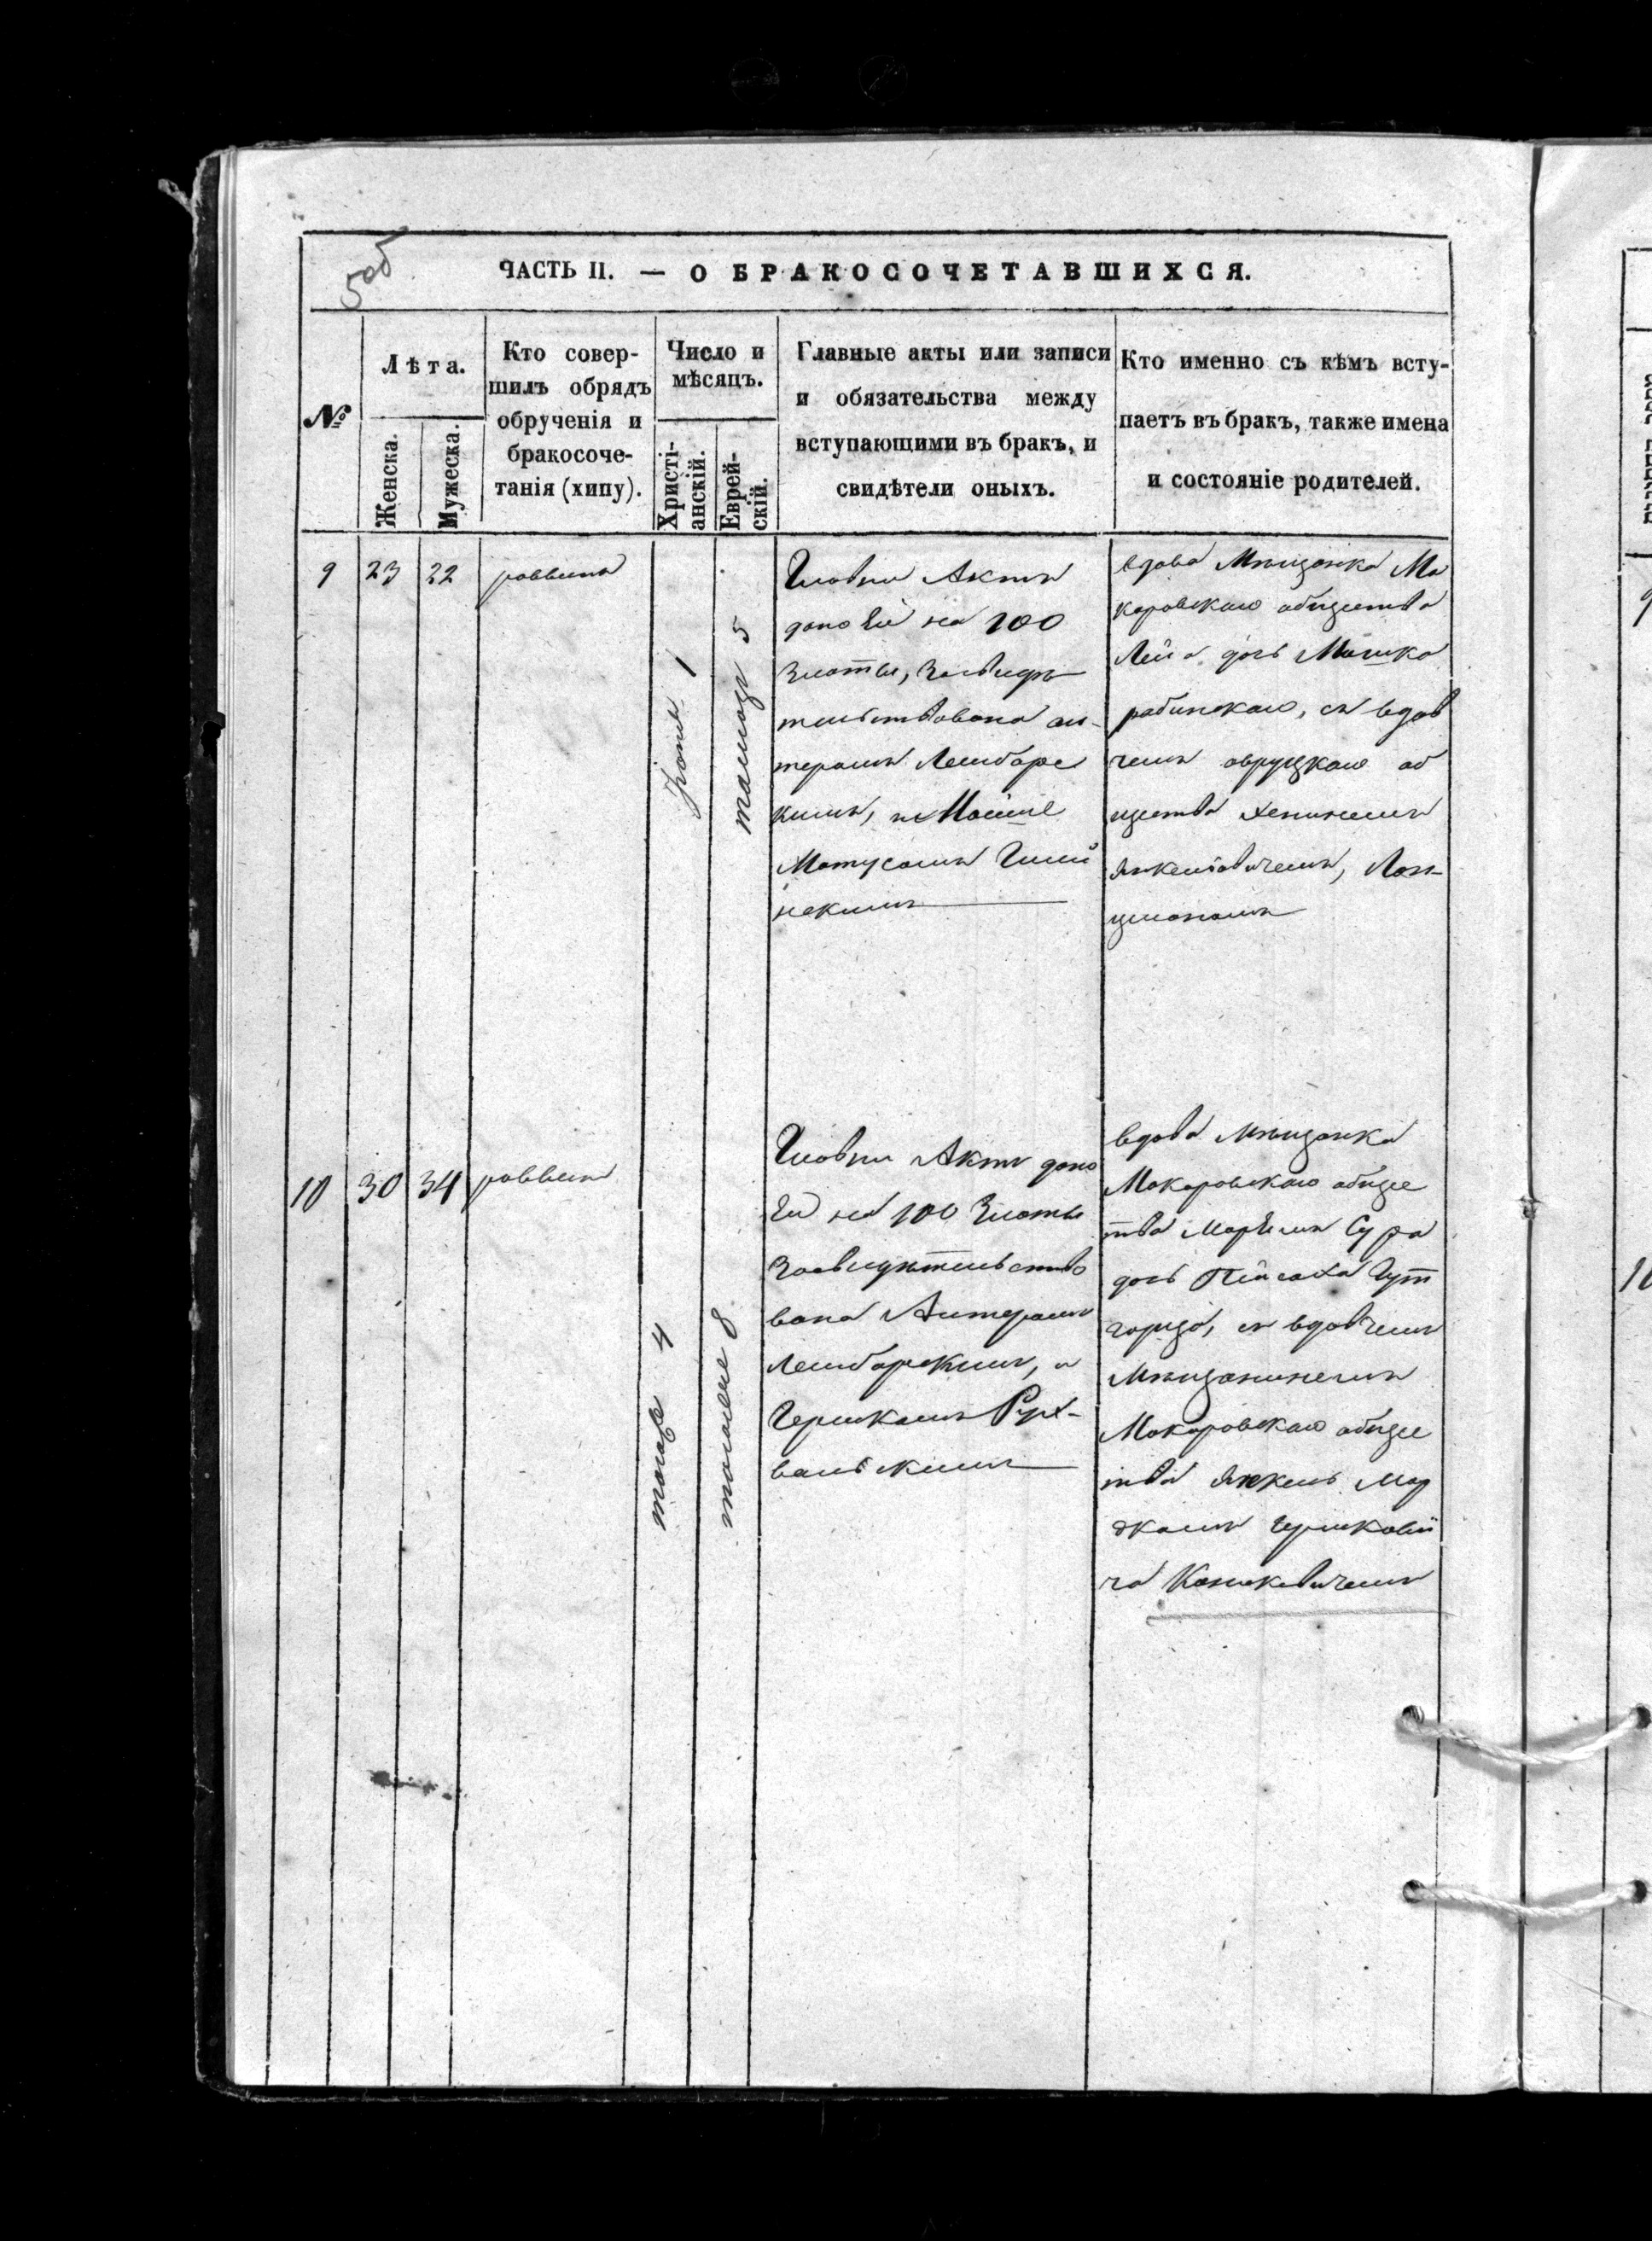 5об
ЧАСТЬ II. — О БРАКОСОЧЕТАВШИХСЯ.
№
Лѣта.
Женска.
Мужеска.
Кто совер-
шилъ обрядъ
обрученія и
бракосоче-
танія (хипу).
Число и
мѣсяцъ.
Христі-
анскій.
Еврей-
скій.
Главные акты или записи
и обязательства между
вступающими въ бракъ, и
свидѣтели оныхъ.
Кто именно съ кѣмъ всту-
паетъ въ бракъ, также имена
и состояніе родителей.
9
23
22
раввинъ
Іюня 1
тамузъ 5
Актъ
дано Ей на 100
Злоты, Засвидѣ
тельствована
Лембарс
кимъ, и Мошие
Матусамъ
нскимъ
вдова Мѣщанка Ма
каровскаго общества
Лея дочь Мошка
рабинскаго, съ вдов
цемъ овруцкаго об
щества
Янкелiовичемъ,
10
30
34
раввинъ
тогоже 4
тогоже 8
Актъ дано
Ей на 100 Злоты
Засвидѣтельство
вана
Лембарскимъ, и
Гершкамъ Рух-
вальскимъ
вдова Мѣщанка
Макаровскаго обще
тва Сура
дочь Пейсаха Гут
гарца, съ вдовцемъ
Мѣщаниномъ
Макаровскаго обще
тва Янкель Мор
дкамъ Гершкови
ча
9
10